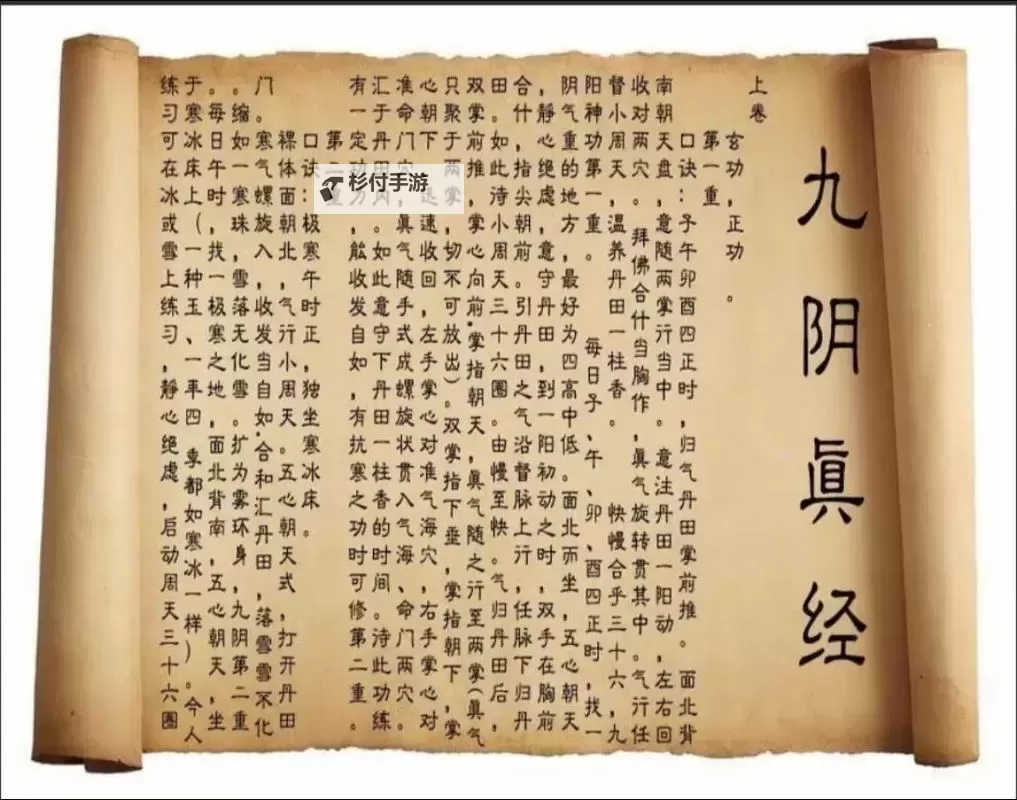 九阴眞经
上卷
玄功，正功。
第一重
口诀：子午卯酉四正时，归气丹田掌前推。面北背
南朝天盘，意随两掌行当中。意注丹田一阳动，左右回
收对两穴。拜佛合什当胸作，眞气旋转贯其中。气行任
督小周天，温养丹田一柱香。快慢合乎三十六，九
阳神功第一重。每日子、午、卯、酉四正时，找一
阴气重的地方，最好为四高中低。面北而坐，五心朝天
，静心绝虑，意守丹田，到一阳初动之时，双手在胸前
合什，指尖朝前。引丹田之气沿督脉上行，任脉下归丹
田。如此待小周天三十六圈。由慢至快。气归丹田后，
双掌前推，掌心向前.掌指朝天，眞气随之行至两掌(眞气
只聚于两掌，切不可放出)。双掌指下垂，掌指朝下，掌
心朝下，速收回，左手掌心对准气海穴，右手掌心对
准命门穴，眞气随手式成螺旋状贯入气海、命门两穴。
汇于丹田内。如此意守下丹田一柱香的时间。诗此功练
有一定功力，能收发自如，有抗寒之功时可修第二重。
第二重
口诀：极寒午时正，独坐寒冰床。
裸体面朝北，气行小周天。五心朝天式，打开丹田
门 寒气螺旋入，收发当自如.合和汇丹田，落雪雪不化
。缩如一寒珠，雪落无化雪。扩为雾环身，九阴第二重
。每日午时，找一极寒之地，面北背南，五心朝天，坐
于寒冰床上(一种玉、一年四季都如寒冰一样)。今人
练习可在冰或雪上练习，静心绝虑，启动周天三十六圈
杉付手游